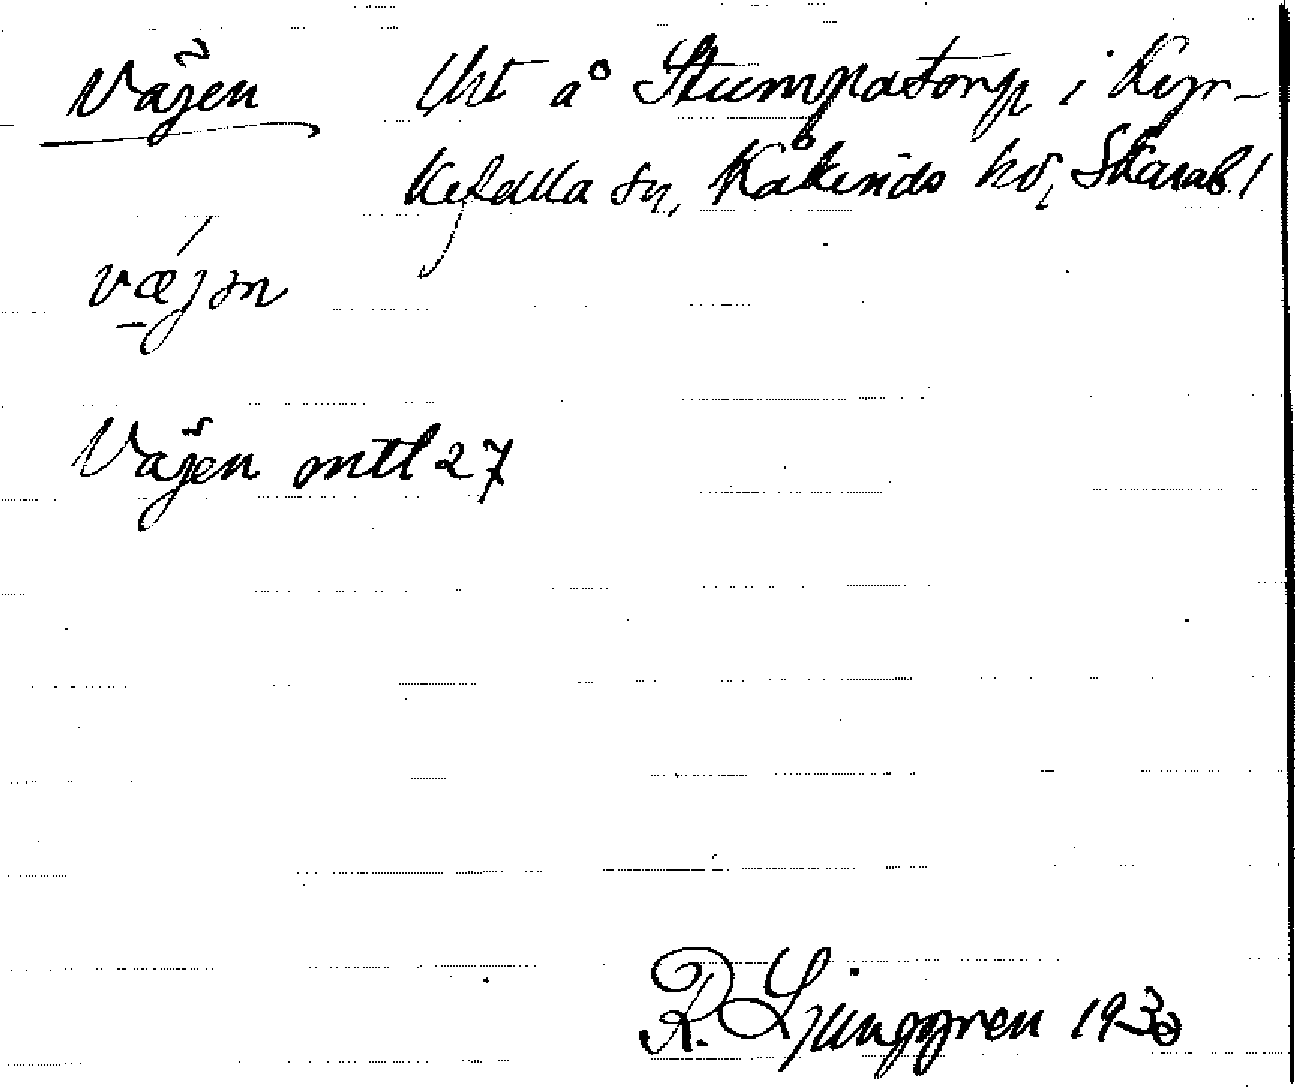 Väjen Utt å Stumpatorp i Kyr-
kefalla sn, Kåkinds hd, Skarab. l
vǽjən
Väjen mtl 27
R. Ljunggren 1930